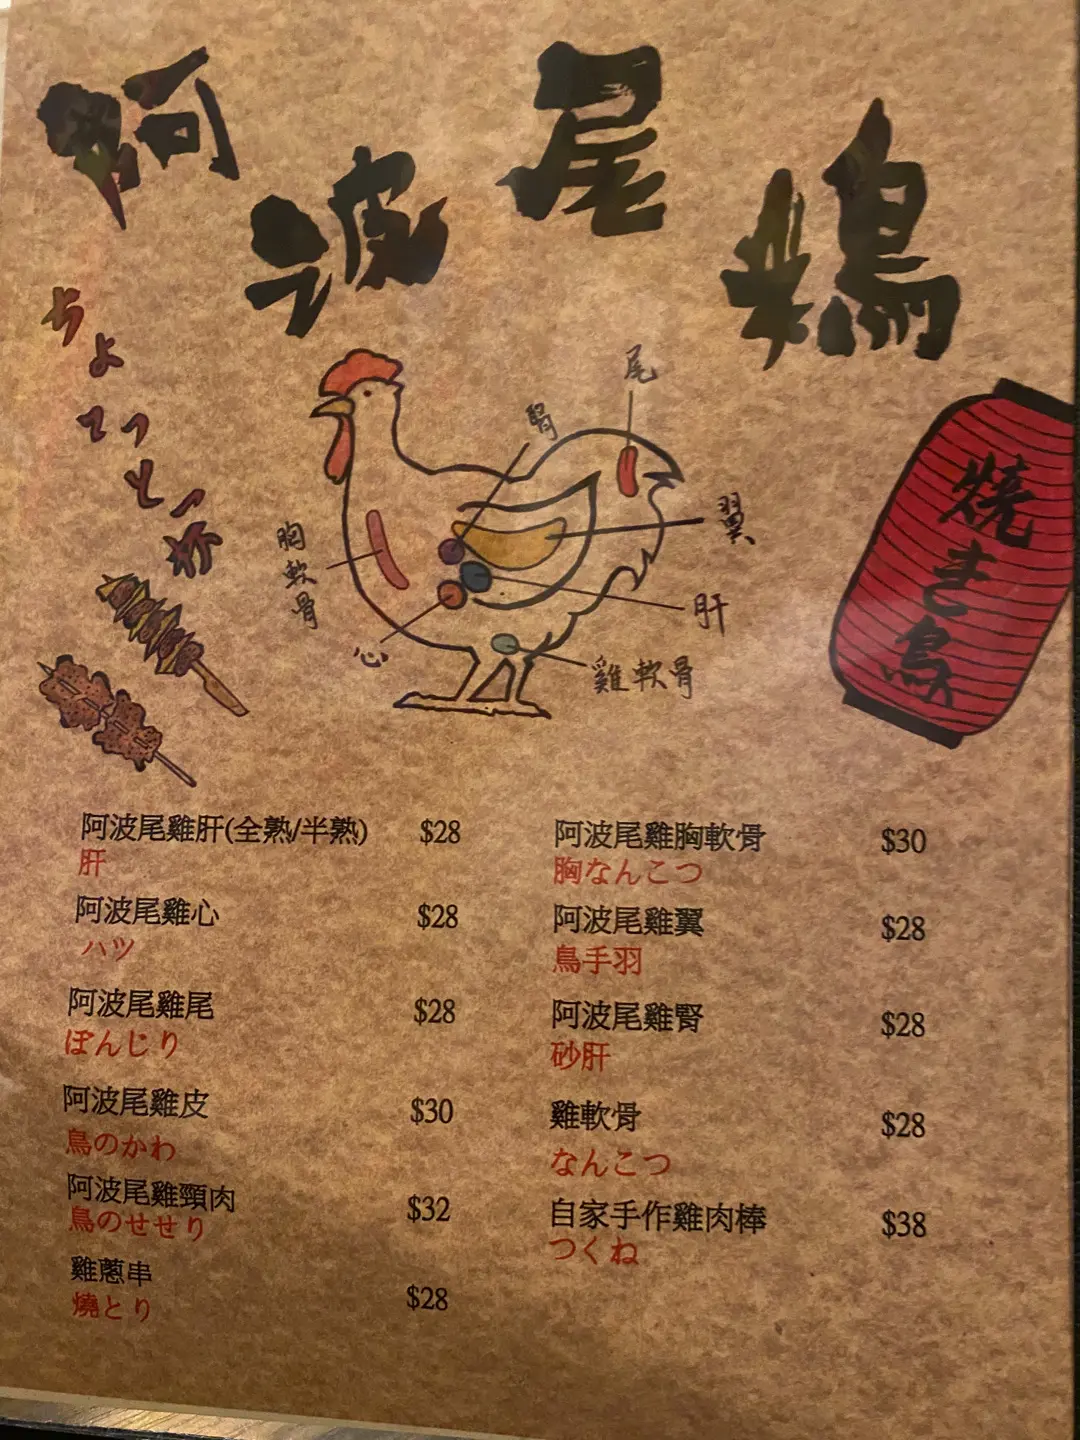 阿波尾鶏
ちょっと一杯
焼き鳥
尾
腎
翼
胸軟骨
肝
心
雞軟骨
阿波尾雞肝(全熟/半熟) $28
肝
阿波尾雞心 $28
ハツ
阿波尾雞尾 $28
ぼんじり
阿波尾雞皮 $30
鳥のかわ
阿波尾雞頸肉 $32
鳥のせせり
雞蔥串 $28
燒とり
阿波尾雞胸軟骨 $30
胸なんこつ
阿波尾雞翼 $28
鳥手羽
阿波尾雞腎 $28
砂肝
雞軟骨 $28
なんこつ
自家手作雞肉棒 $38
つくね